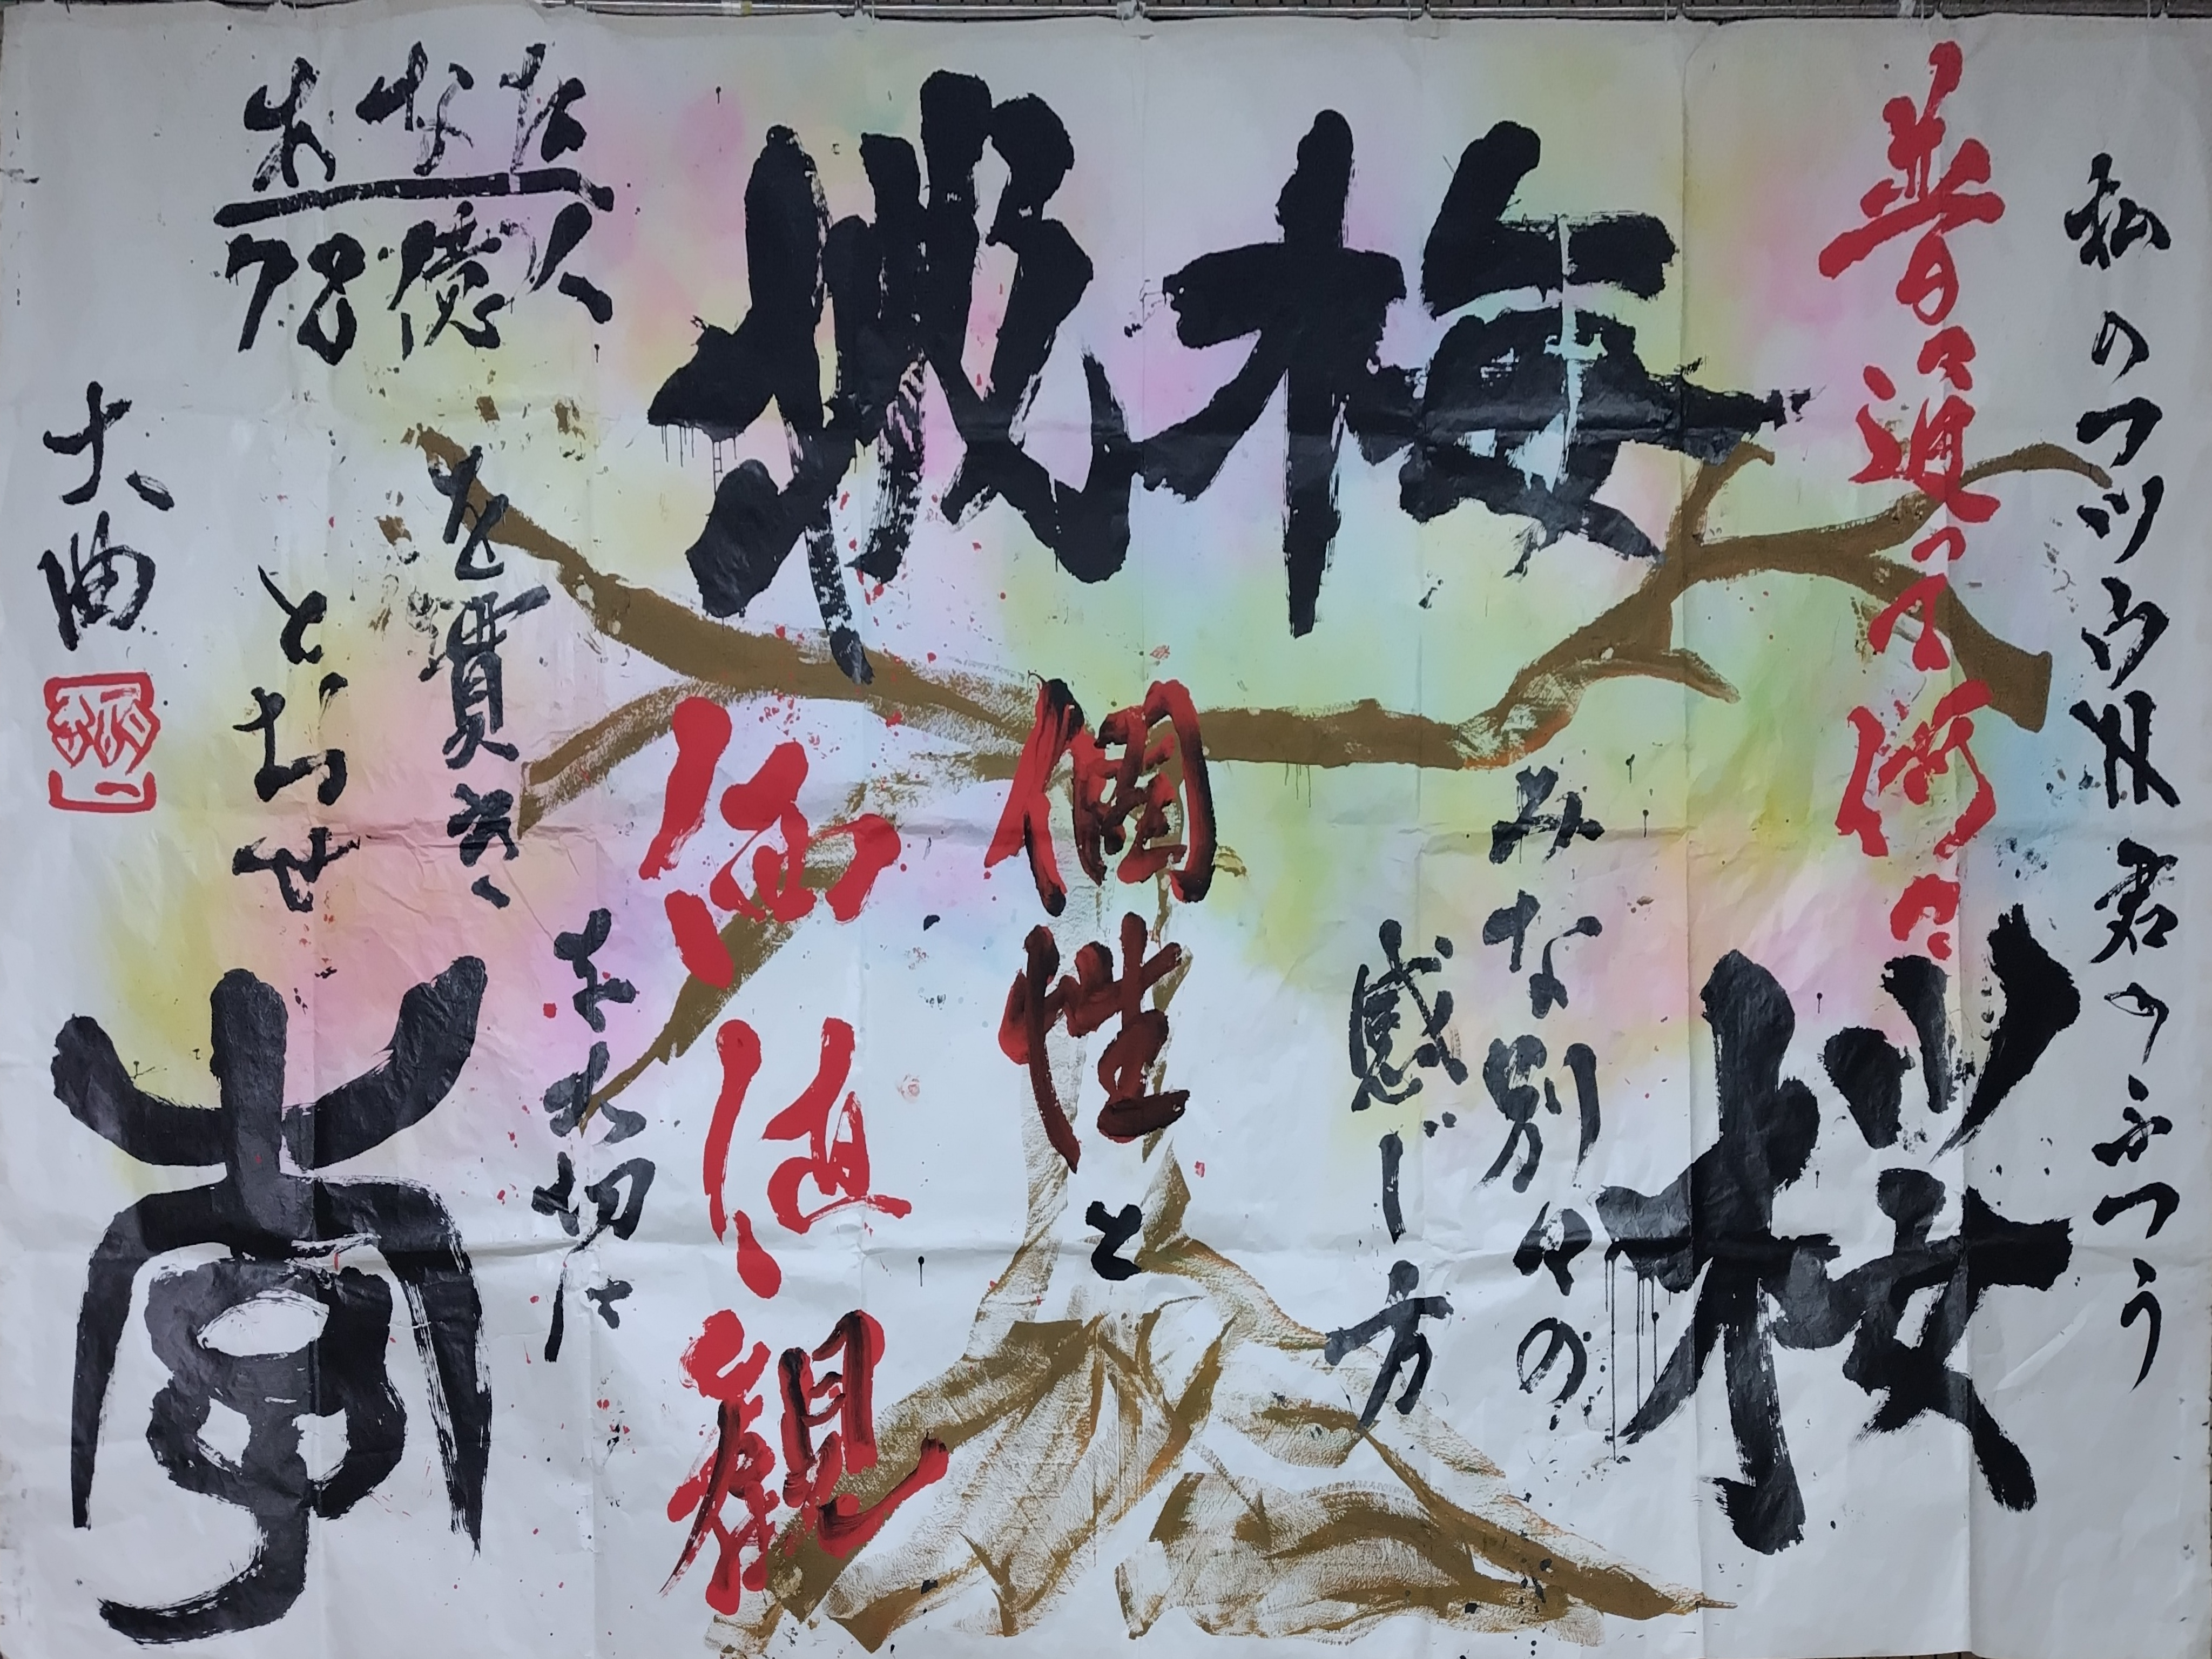 私のフツウ≠君のふつう
普通って何?
桜
梅
桃
李
みな別々の
感じ方
個性と
価値観
を大切に
を貫き、
とおせ
あなた
78億人
大曲